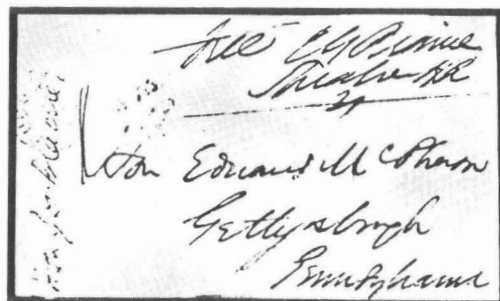 Free J G Blaine
Speaker HR
Hon Edward McPherson
Gettysburgh
Pennsylvania